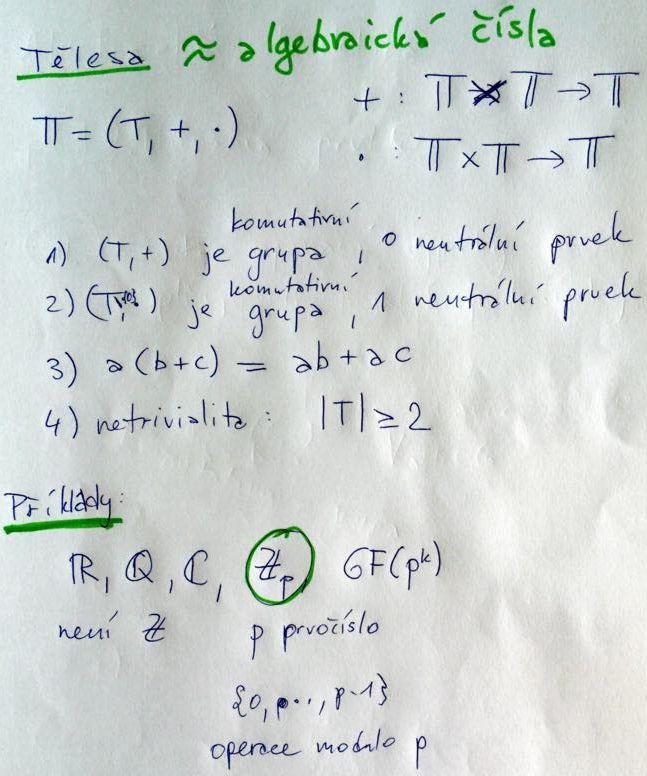 Tělesa ≈ algebraická čísla
𝕋 = (T, +, ·)
+ : 𝕋 × 𝕋 → 𝕋
· : 𝕋 × 𝕋 → 𝕋
komutativní
1) (T, +) je grupa, 0 neutrální prvek
komutativní
2) (T\{0}, ·) je grupa, 1 neutrální prvek
3) a(b+c) = ab + ac
4) netrivialita: |T| ≥ 2
Příklady:
ℝ, ℚ, ℂ, ℤp GF(p^k)
není ℤ p prvočíslo
{0, ..., p-1}
operace modulo p